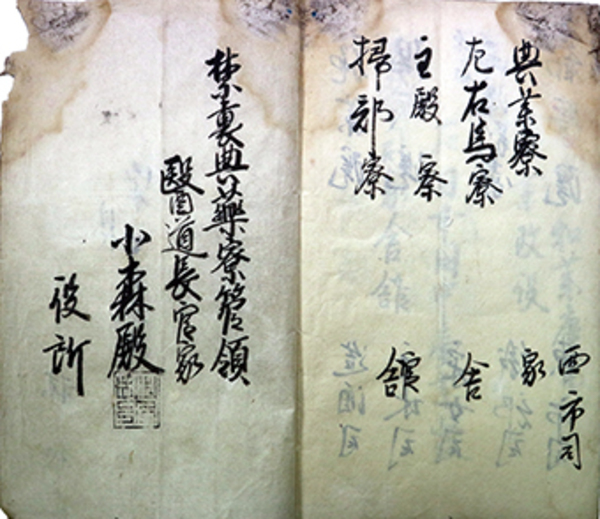 典薬寮
左右馬寮
主殿寮
掃部寮
西市司
家
舎
館
禁裏典藥寮管領
醫道長官家
小森殿
役所